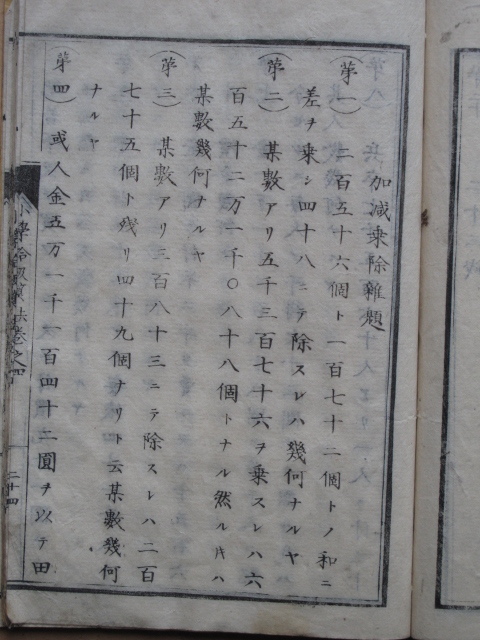 加減乗除雜題
(第一) 二百五十六個ト一百七十二個トノ和ニ
差ヲ乗シ四十八ニテ除スレハ幾何ナルヤ
(第二) 某數アリ五千三百七十六ヲ乗スレハ六
百五十二万一千〇八十八個トナル然ルㇳキハ
某數幾何ナルヤ
(第三) 某數アリ三百八十三ニテ除スレハ二百
七十五個ト殘リ四十九個ナリト云某數幾何
ナルヤ
(第四) 或人金五万一千一百四十二圓ヲ以テ田
小學 算法卷之四
二十四